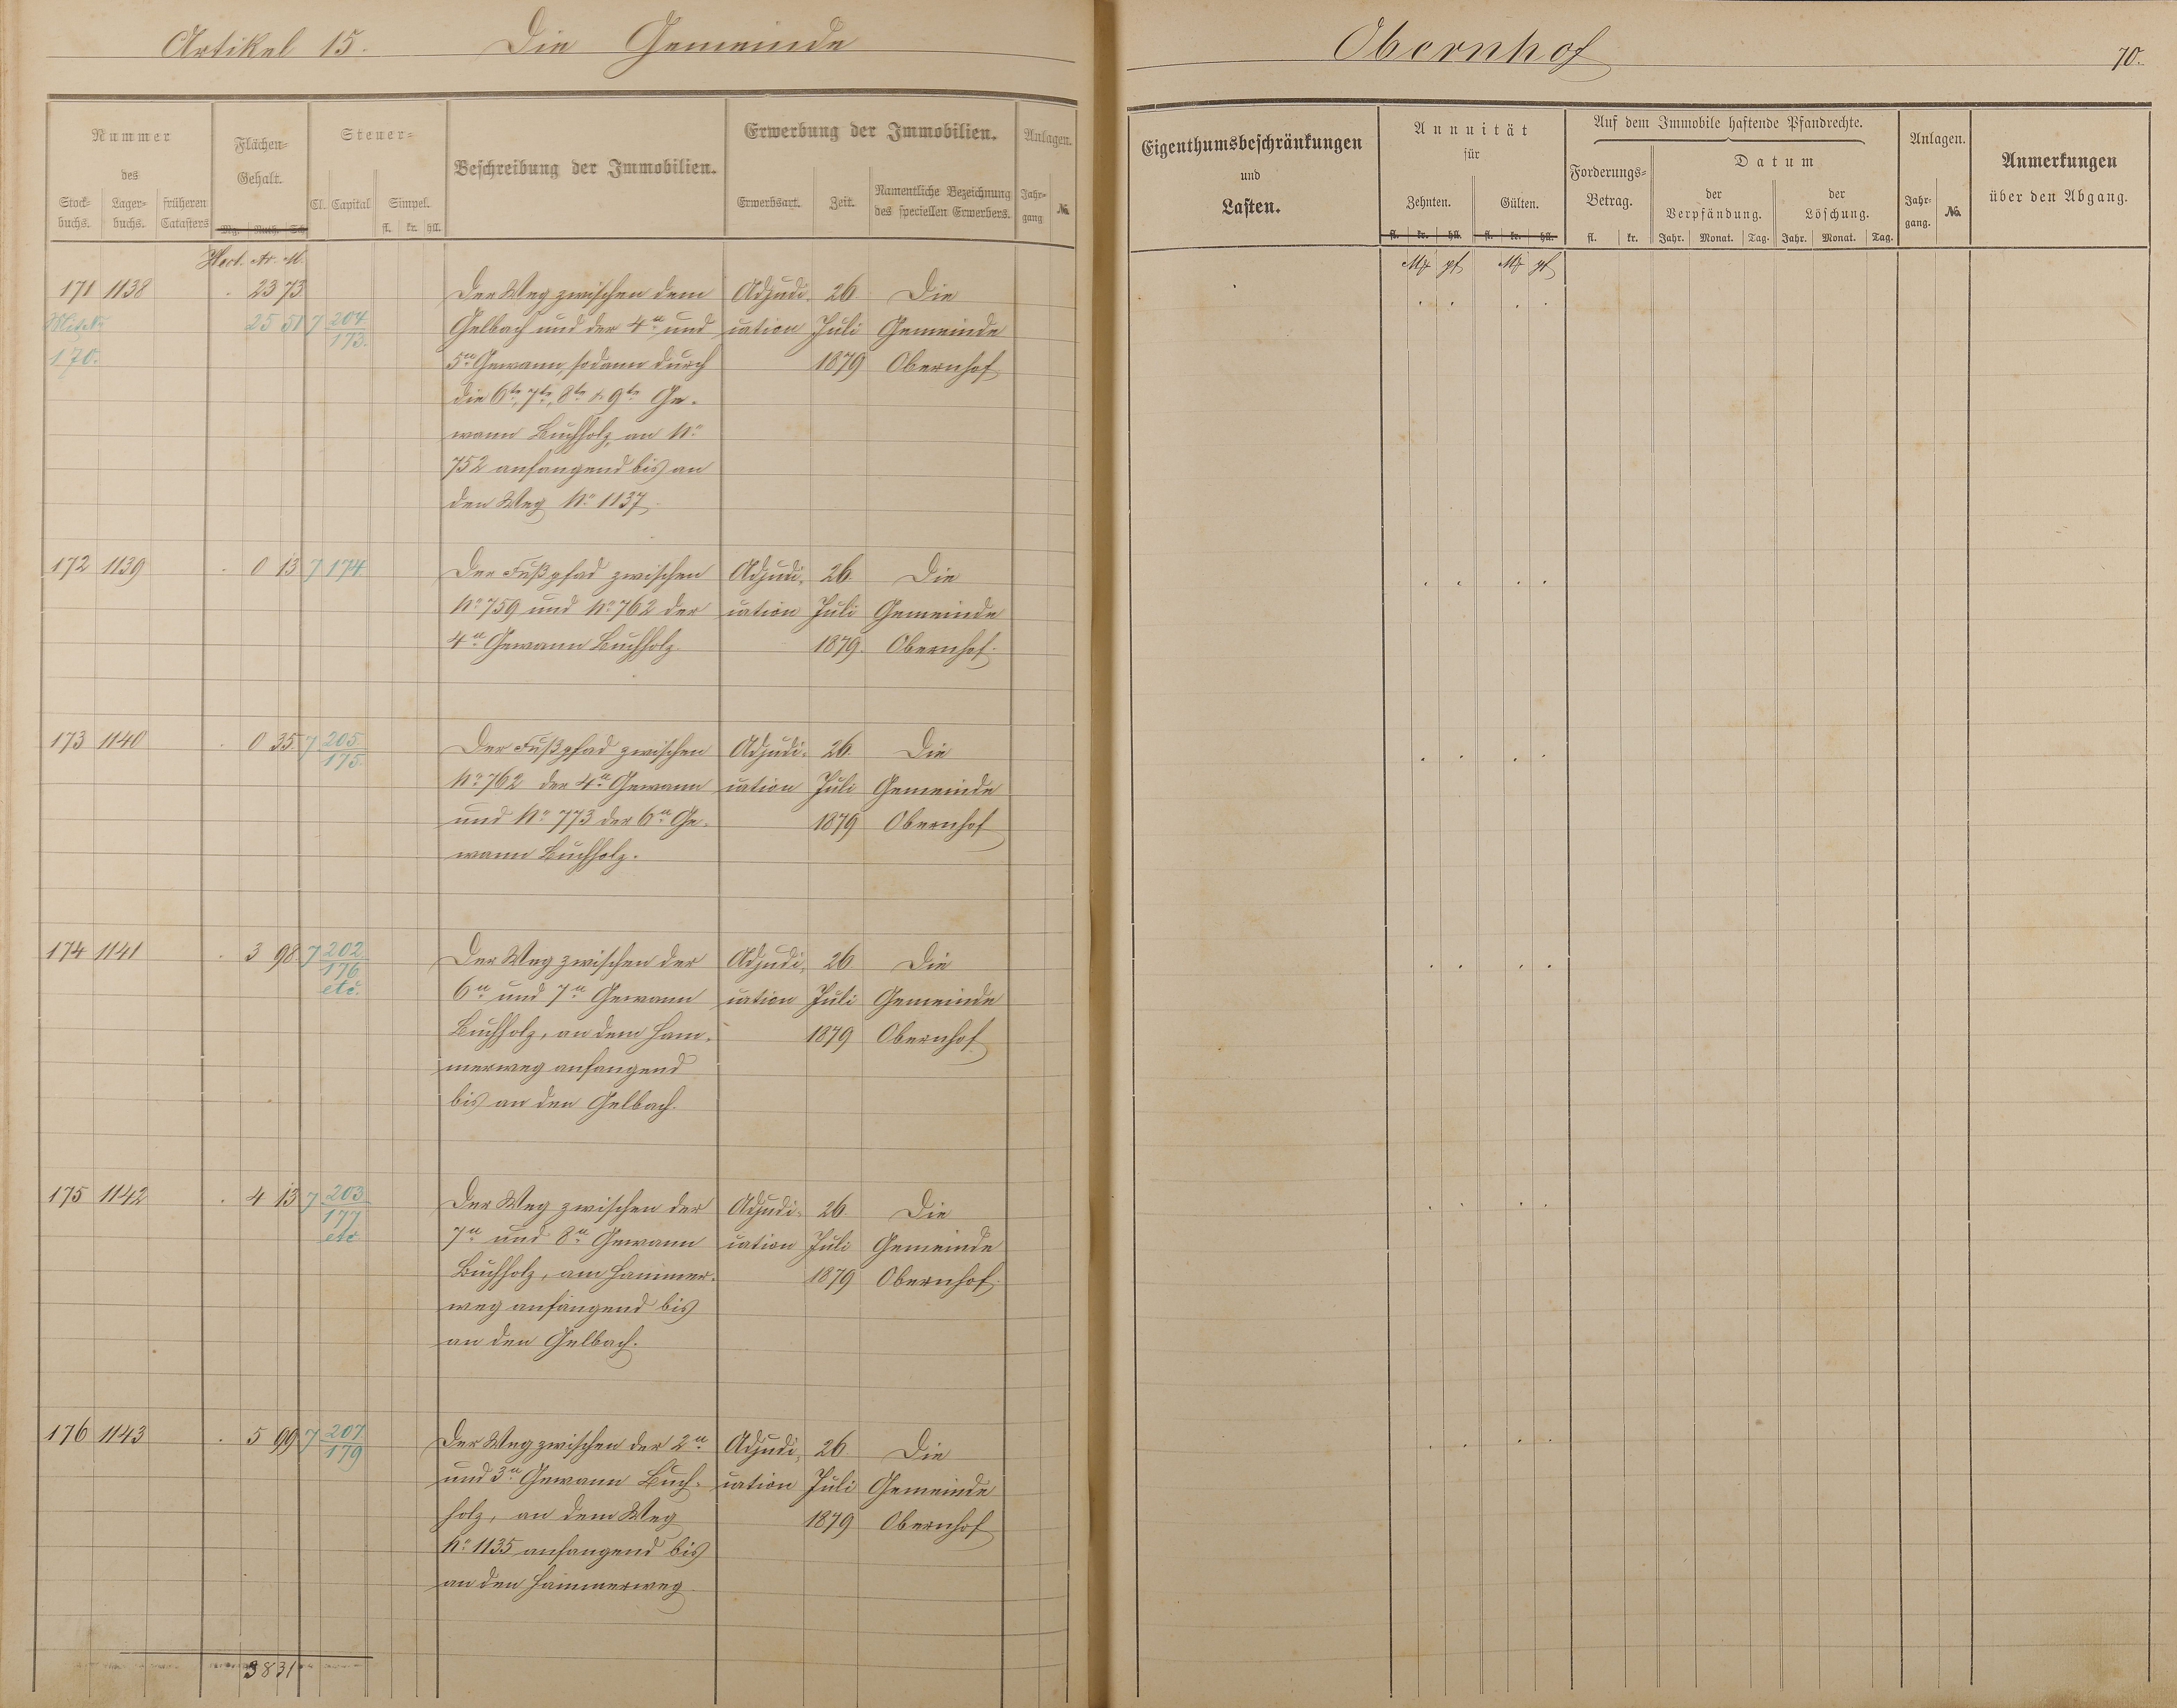 Artikel 15. Die Gemeinde
Obernhof
70.
Nummer
des
Stock-
buchs.
Lager-
buchs.
früheren
Catasters
Flächen-
Gehalt.
Mg. Ruth. Sch.
Steuer-
Cl. Capital Simpel.
fl. kr. hll.
Beschreibung der Immobilien.
Erwerbung der Immobilien.
Erwerbsart. Zeit.
Namentliche Bezeichnung
des speciellen Erwerbers.
Anlagen.
Jahr-
gang
№
Eigenthumsbeschränkungen
und
Lasten.
Annuität
für
Zehnten. Gülten.
fl. kr. hll. fl. kr. hll.
Auf dem Immobile haftende Pfandrechte.
Forderungs-
Betrag.
fl. kr.
Datum
der
Verpfändung.
der
Löschung.
Jahr. Monat. Tag. Jahr. Monat. Tag.
Anlagen.
Jahr-
gang.
№.
Anmerkungen
über den Abgang.
Hect. Ar. M.
Mk pf Mk pf
171 1138 . 23 73 Der Weg zwischen dem Adjudi- 26. Die
Mit No 25 51 7 204 Gelbach und der 4n und cation Juli Gemeinde
170. 173. 5n Gewann, sodann durch 1879 Obernhof
die 6te, 7te, 8te & 9te Ge-
wann Buchholz, an No
752 anfangend bis an
den Weg No 1137.
172 1139 . 0 13 7 174 Der Fußpfad zwischen Adjudi- 26 Die
No 759 und No 762 der cation Juli Gemeinde
4n Gewann Buchholz. 1879. Obernhof.
173 1140 . 0 35 7 205 Der Fußpfad zwischen Adjudi- 26 Die
175. No 762 der 4n Gewann cation Juli Gemeinde
und No 773 der 6n Ge- 1879 Obernhof
wann Buchholz.
174 1141 . 3 98 7 202 Der Weg zwischen der Adjudi- 26 Die
176 6n und 7n Gewann cation Juli Gemeinde
etc. Buchholz, an dem Ham- 1879 Obernhof
merweg anfangend
bis an den Gelbach.
175 1142 . 4 13 7 203 Der Weg zwischen der Adjudi- 26 Die
177 7n und 8n Gewann cation Juli Gemeinde
etc Buchholz, am Hammer- 1879 Obernhof.
weg anfangend bis
an den Gelbach.
176 1143 . 5 99 7 207 Der Weg zwischen der 2n Adjudi- 26 Die
179 und 3n Gewann Buch- cation Juli Gemeinde
holz, an dem Weg 1879 Obernhof
No 1135 anfangend bis
an den Hammerweg.
3831